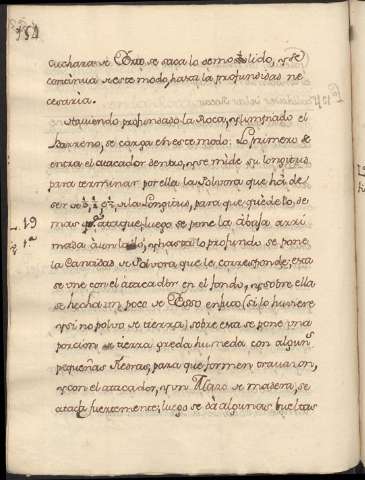 154
cucharas de Yerro, se saca lo demolido, y se
continua de este modo, hasta la profundidad ne
cesaria.
Haviendo profundado la Roca, y limpiado el
Barreno, se carga en este modo: Lo primero se
entra el atacador dentro, y se mide su longitud
para terminar por ella la Polvora que ha de
ser de la Longitud, para que quede lo de
mas ataque; luego se pone la abuja arri
L. 19
mada à un lado, y hasta lo profundo se pone
la Cantidad de Polvora que le corresponde; esta
se une con el atacador en el fondo, y sobre ella
se hecha un poco de (si lo huviere
y si no polvo de tierra) sobre esta se pone una
porcion de tierra greda humeda con algun
pequeñas Piedras, para que formen travazon,
y con el atacador, y un Mazo de madera, se
ataca fuertemente; luego se dà algunas bueltas